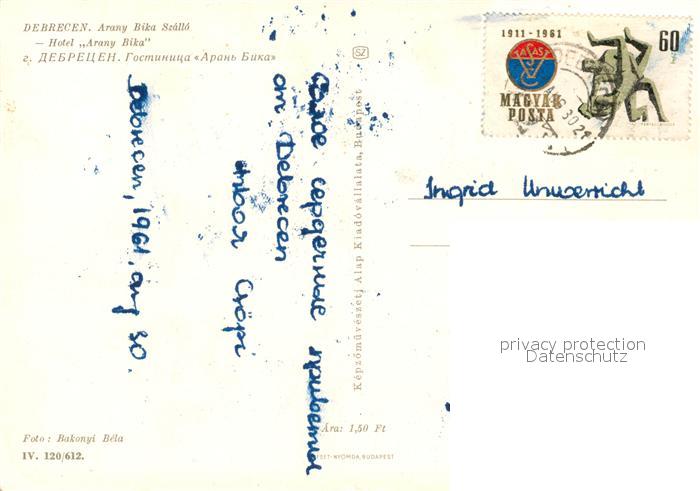 DEBRECEN. Arany Bika Szálló
— Hotel „Arany Bika"
г. ДЕБРЕЦЕН. Гостиница «Арань Бика»
SZ
1911 - 1961
VASAS SC
MAGYAR
POSTA
60
Ingrid Unverricht
сердечные приветы
от Debrecen
Debrecen, 1961. aug 30.
Képzőművészeti Alap Kiadóvállalata, Budapest
privacy protection
Datenschutz
Ára: 1,50 Ft
Foto: Bakonyi Béla
IV. 120/612.
SET-NYOMDA, BUDAPEST